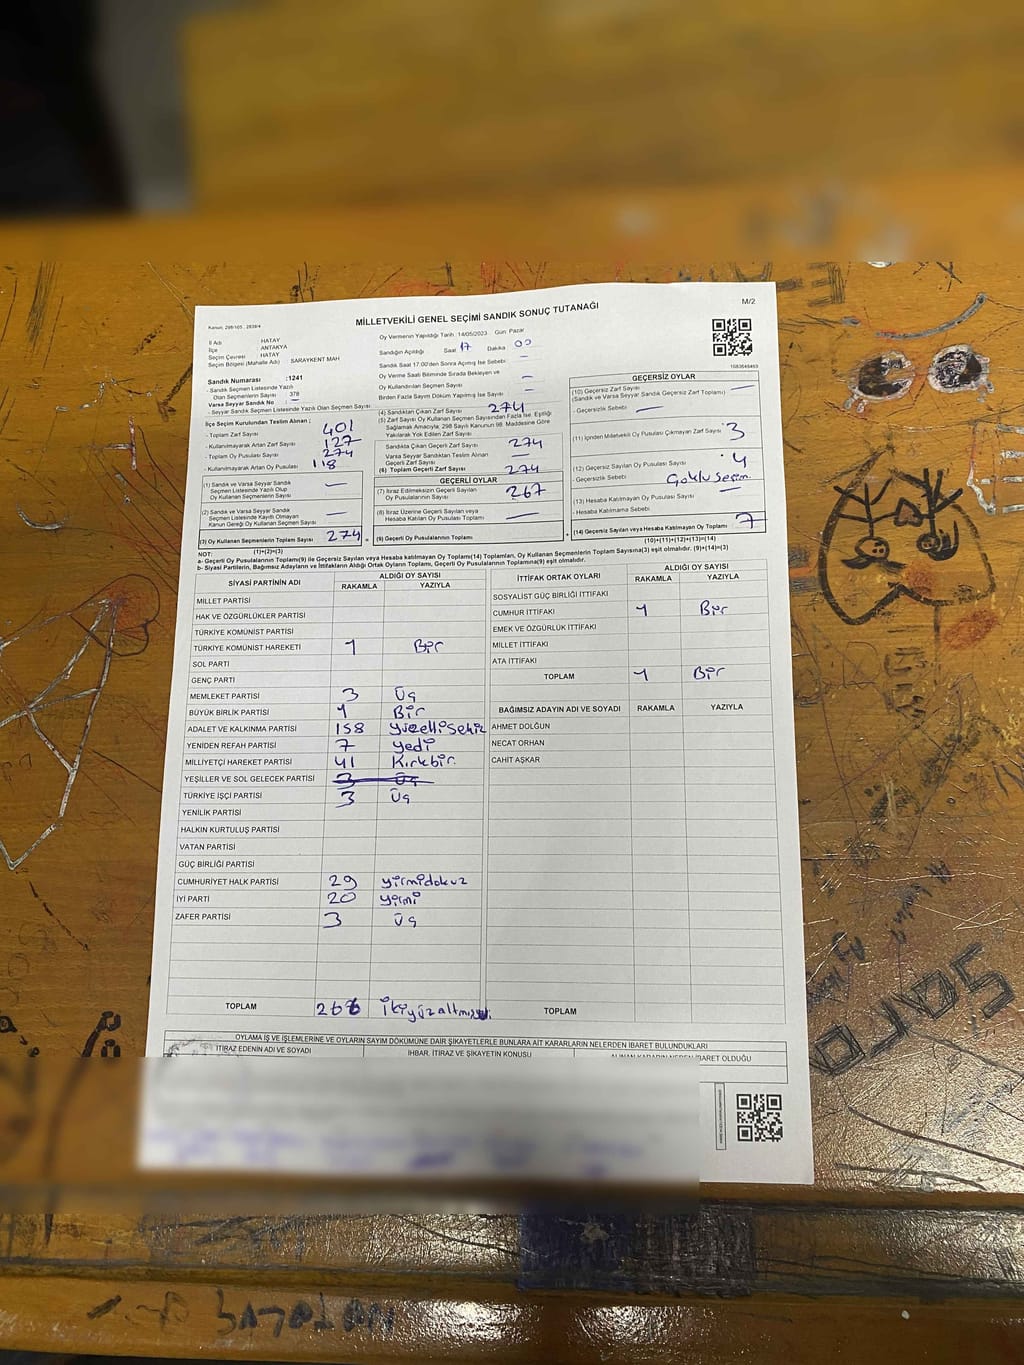 MİLLETVEKİLİ GENEL SEÇİMİ SANDIK SONUÇ TUTANAĞI
M/2
Kanun: 298/105 , 2839/4
İl Adı : HATAY
İlçe : ANTAKYA
Seçim Çevresi : HATAY
Seçim Bölgesi (Mahalle Adı) : SARAYKENT MAH
Sandık Numarası :1241
- Sandık Seçmen Listesinde Yazılı Olan Seçmenlerin Sayısı : 378
Varsa Seyyar Sandık No : —
- Seyyar Sandık Seçmen Listesinde Yazılı Olan Seçmen Sayısı
İlçe Seçim Kurulundan Teslim Alınan ;
- Toplam Zarf Sayısı : 401
- Kullanılmayarak Artan Zarf Sayısı : 127
- Toplam Oy Pusulası : 274
- Kullanılmayarak Artan Oy Pusulası : 118
(1) Sandık ve Varsa Seyyar Sandık Seçmen Listesinde Yazılı Olup Oy Kullanan Seçmenlerin Sayısı —
(2) Sandık ve Varsa Seyyar Sandık Seçmen Listesinde Kayıtlı Olmayan Kanun Gereği Oy Kullanan Seçmen Sayısı —
(3) Oy Kullanan Seçmenlerin Toplam Sayısı 274 =
(1)+(2)=(3)
Oy Vermenin Yapıldığı Tarih : 14/05/2023 Gün: Pazar
Sandığın Açıldığı Saat 17 Dakika 00
Sandık Saat 17.00'den Sonra Açılmış İse Sebebi: —
Oy Verme Saati Bitiminde Sırada Bekleyen ve
Oy Kullandırılan Seçmen Sayısı —
Birden Fazla Sayım Döküm Yapılmış İse Sayısı —
(4) Sandıktan Çıkan Zarf Sayısı 274
(5) Zarf Sayısı Oy Kullanan Seçmen Sayısından Fazla İse, Eşitliği Sağlamak Amacıyla, 298 Sayılı Kanunun 98. Maddesine Göre Yakılarak Yok Edilen Zarf Sayısı
Sandıkta Çıkan Geçerli Zarf Sayısı 274
Varsa Seyyar Sandıktan Teslim Alınan Geçerli Zarf Sayısı —
(6) Toplam Geçerli Zarf Sayısı 274
GEÇERLİ OYLAR
(7) İtiraz Edilmeksizin Geçerli Sayılan Oy Pusulalarının Sayısı 267
(8) İtiraz Üzerine Geçerli Sayılan veya Hesaba Katılan Oy Pusulası Toplamı —
(9) Geçerli Oy Pusulalarının Toplamı +
1083645463
GEÇERSİZ OYLAR
(10) Geçersiz Zarf Sayısı —
(Sandık ve Varsa Seyyar Sandık Geçersiz Zarf Toplamı)
- Geçersizlik Sebebi : —
(11) İçinden Milletvekili Oy Pusulası Çıkmayan Zarf Sayısı : 3
(12) Geçersiz Sayılan Oy Pusulası Sayısı : 4
- Geçersizlik Sebebi : Çoklu Seçim
(13) Hesaba Katılmayan Oy Pusulası Sayısı —
- Hesaba Katılmama Sebebi :
(14) Geçersiz Sayılan veya Hesaba Katılmayan Oy Toplamı 7
(10)+(11)+(12)+(13)=(14)
NOT:
a- Geçerli Oy Pusulalarının Toplamı(9) ile Geçersiz Sayılan veya Hesaba Katılmayan Oy Toplamı(14) Toplamları, Oy Kullanan Seçmenlerin Toplam Sayısına(3) eşit olmalıdır. (9)+(14)=(3)
b- Siyasi Partilerin, Bağımsız Adayların ve İttifakların Aldığı Ortak Oyların Toplamı, Geçerli Oy Pusulalarının Toplamına(9) eşit olmalıdır.
SİYASİ PARTİNİN ADI ALDIĞI OY SAYISI
RAKAMLA YAZIYLA
MİLLET PARTİSİ
HAK VE ÖZGÜRLÜKLER PARTİSİ
TÜRKİYE KOMÜNİST PARTİSİ
TÜRKİYE KOMÜNİST HAREKETİ 1 Bir
SOL PARTİ
GENÇ PARTİ
MEMLEKET PARTİSİ 3 Üç
BÜYÜK BİRLİK PARTİSİ 1 Bir
ADALET VE KALKINMA PARTİSİ 158 yüzellisekiz
YENİDEN REFAH PARTİSİ 7 yedi
MİLLİYETÇİ HAREKET PARTİSİ 41 Kırkbir.
YEŞİLLER VE SOL GELECEK PARTİSİ 3 Üç
TÜRKİYE İŞÇİ PARTİSİ 3 Üç
YENİLİK PARTİSİ
HALKIN KURTULUŞ PARTİSİ
VATAN PARTİSİ
GÜÇ BİRLİĞİ PARTİSİ
CUMHURİYET HALK PARTİSİ 29 yirmidokuz
İYİ PARTİ 20 yirmi
ZAFER PARTİSİ 3 Üç
TOPLAM 266
İTTİFAK ORTAK OYLARI ALDIĞI OY SAYISI
RAKAMLA YAZIYLA
SOSYALİST GÜÇ BİRLİĞİ İTTİFAKI
CUMHUR İTTİFAKI 1 Bir
EMEK VE ÖZGÜRLÜK İTTİFAKI
MİLLET İTTİFAKI
ATA İTTİFAKI
TOPLAM 1 Bir
BAĞIMSIZ ADAYIN ADI VE SOYADI RAKAMLA YAZIYLA
AHMET DOLĞUN
NECAT ORHAN
CAHİT AŞKAR
TOPLAM
OYLAMA İŞ VE İŞLEMLERİNE VE OYLARIN SAYIM DÖKÜMÜNE DAİR ŞİKAYETLERLE BUNLARA AİT KARARLARIN NELERDEN İBARET BULUNDUKLARI
İTİRAZ EDENİN ADI VE SOYADI İHBAR, İTİRAZ VE ŞİKAYETİN KONUSU ALINAN KARARIN NEDEN İBARET OLDUĞU